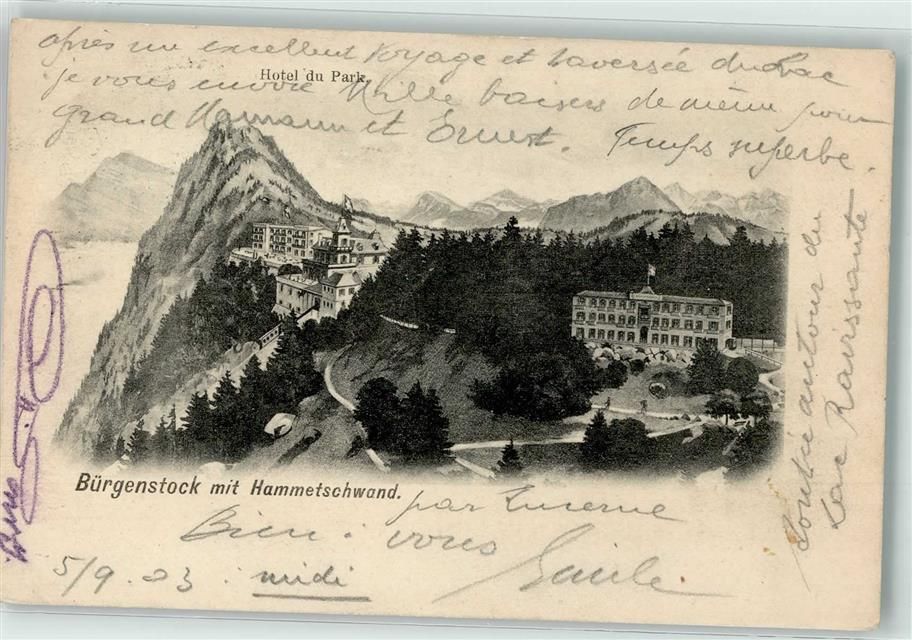 après un excellent voyage et traversée du Lac
Hotel du Park.
je vous envoie Mille baisers de même pour
grand Maman et Ernest. Temps superbe.
autour du
Lac Ravissante
Bürgenstock mit Hammetschwand.
par Lucerne
Bien: vous
5/9.03. midi